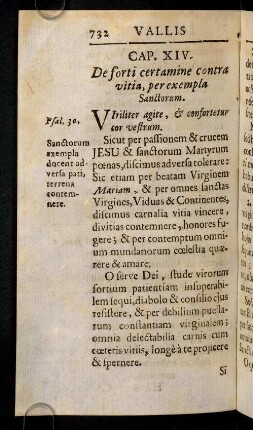 732 VALLIS
CAP. XIV.
De forti certamine contra
vitia, per exempla
Sanctorum.
Psal. 30.
VIriliter agite, & confortetur
cor vestrum.
Sanctorum
exempla
docent ad-
versa pati,
terrena
contem-
nere.
Sicut per passionem & crucem
JESU & sanctorum Martyrum
pœnas, discimus adversa tolerare:
Sic etiam per beatam Virginem
Mariam, & per omnes sanctas
Virgines, Viduas & Continentes,
discimus carnalia vitia vincere,
divitias contemnere, honores fu-
gere; & per contemptum omni-
um mundanorum cœlestia quæ-
rere & amare.
O serve Dei, stude virorum
fortium patientiam insuperabi-
lem sequi, diabolo & consilio ejus
resistere, & per debilium puella-
rum constantiam virginalem;
omnia delectabilia carnis cum
cœteris vitiis, longè à te projicere
& spernere.
Si